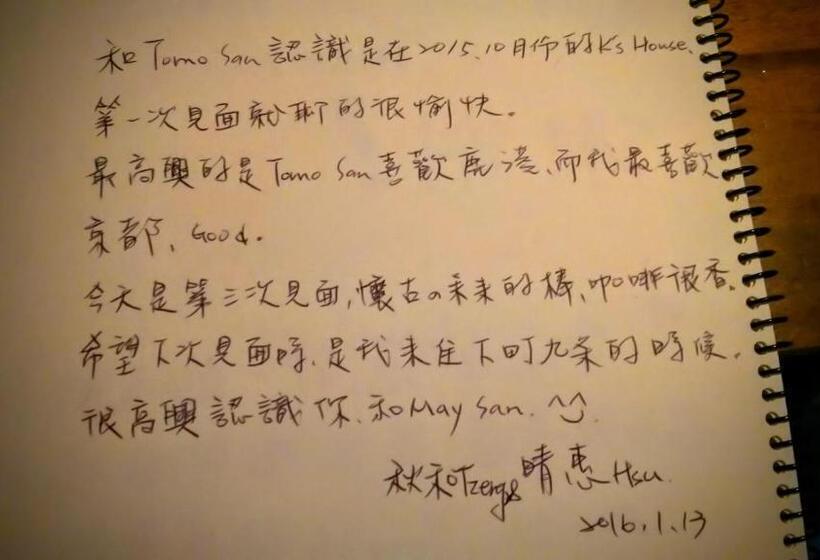 和Tomo San認識是在2015.10月份的K's House、
第一次見面就聊的很愉快。
最高興的是Tomo San喜歡鹿港、而我最喜歡
京都、Good.
今天是第三次見面,懷古の未来的棒、咖啡很香。
希望下次見面時、是我来住下町九条的時候。
很高興認識你、和May San. ^^
秋和 晴惠Hsu.
2016.1.13